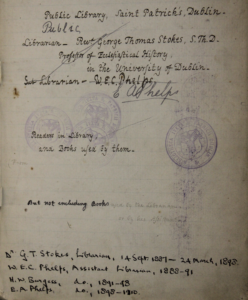 Public Library, Saint Patrick's, Dublin.
Public
Librarian - Revd George Thomas Stokes, S.Th.D.
Professor of Ecclesiastical History
in the University of Dublin.
Sub Librarian - W.E.C. Phelps
E A Phelps
Readers in Library,
and Books used by them.
But not excluding Books
Dr G.T. Stokes, Librarian, 14 Sept. 1887 - 24 March, 1898
W.E.C. Phelps, Assistant Librarian, 1888-91
H.W. Burgess, do., 1891-98
E.A. Phelps, do., 1898-1910.